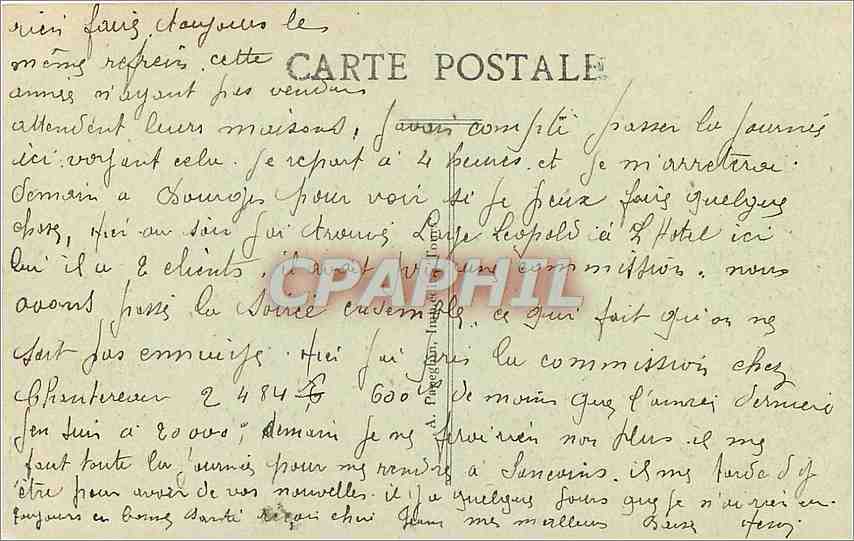 rien faire, toujours le
même refrein, cette
CARTE POSTALE
année n'ayant pas vendus
attendent leurs maisons, j'avais compté passer la journée
ici, voyant cela. Je repart à 4 heures, et je m'arretterai
demain a Bourges pour voir si je peux faire quelque
chose, Hier au soir j'ai trouvé Léopold à L'Hotel ici
lui il a 2 clients, il avait pris une commission. nous
avons passé la soirée ensemble, ce qui fait qu'on ne
sait pas ennuiyé. Hier j'ai pris la commission chez
Chantereau 2 484 600 de moins que l'année dernière
j'en suis à 20000, demain je ne ferai rien non plus il me
faut toute la journée pour me rendre à Sancoins. il me tarde d'y
être pour avoir de vos nouvelles. il y a quelques jours que je n'ai rien eu
toujours en bonne santé reçoi cheri mes meilleurs Baisers Henri
A. Pageglan, Imp.
CPAPHIL